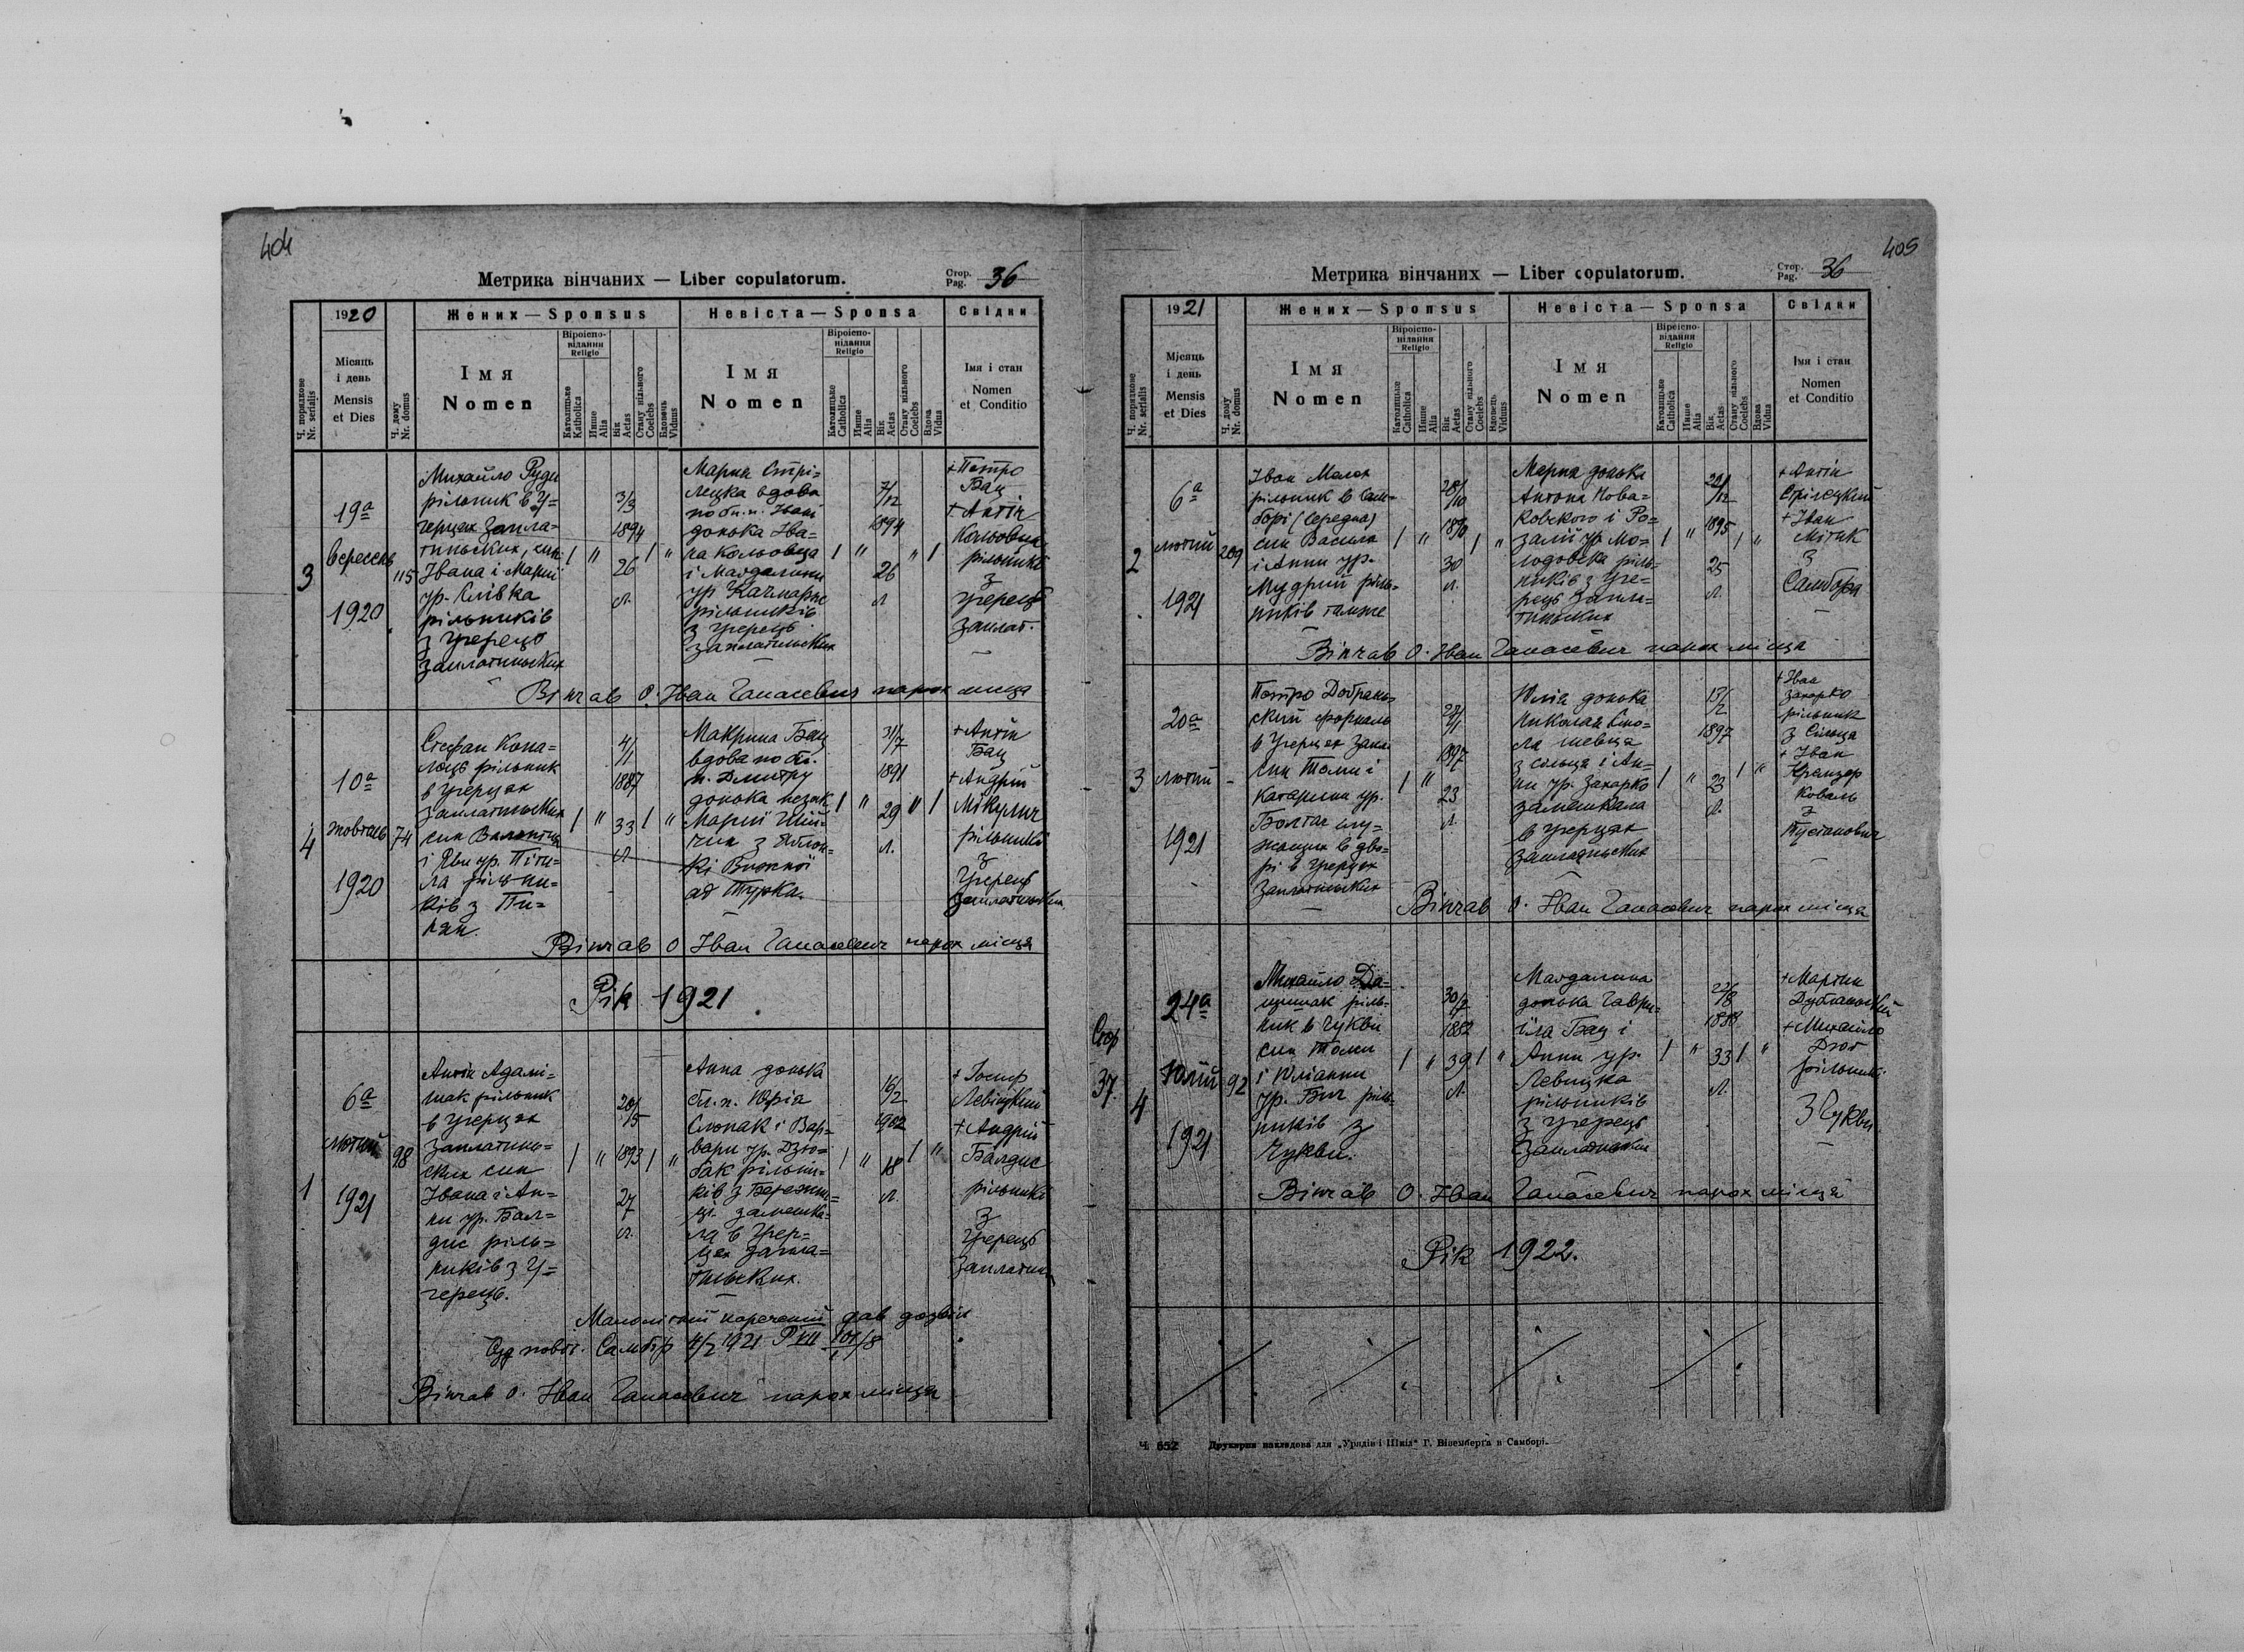 404
Метрика вінчаних — Liber copulatorum.
Стор.
Pag. 36
Ч. порядкове
Nr. serialis
1920
Місяць
і день
Mensis
et Dies
Ч. дому
Nr. domus
Жених — Sponsus
Імя
Nomen
Віроіспо-
відання
Religio
Католицьке
Catholica
Инше
Alia
Вік
Aetas
Стану вільного
Coelebs
Вдовець
Viduus
Невіста — Sponsa
Імя
Nomen
Віроіспо-
відання
Religio
Католицьке
Catholica
Инше
Alia
Вік
Aetas
Стану вільного
Coelebs
Вдова
Vidua
Свідки
Імя і стан
Nomen
et Conditio
3
19а
вересень
1920
115
Михайло Руди
рільник в У=
герцях Запла=
тинських, син
Івана і Марії
ур. Слівка
рільників
з Угерець
заплатинських
1 "
3/3
1894
26
л.
1 "
Мария Стрі=
лецка вдова
по бл. п. Івані
донька Іва=
на Кольовца
і Магдалини
ур Качмарик
рільників
з Угерець
заплатинських
1 "
7/12
1894
26
л
" 1
+ Петро
Бац
+ Антін
рільники
з
Угерець
заплат.
Вінчав о. Іван Ганасевич парох місця
4
10а
жовтень
1920
74
Стефан Копа=
рільник
в Угерцях
заплатинських
син Валентия
і Яви ур. Піти=
ла рільни=
ків з Пи=
нян.
1 "
4/1
1887
33
л
1 "
Макрина Бац
вдова по бл.
п. Дмитру
донька незак.
Марії Ший=
чик з Яблон=
кі Вижної
ад Турка.
1 "
31/7
1891
29
л.
" 1
+ Антін
Бац
+ Андрій
Мікулич
рільники
з
Угерець
Заплатинських
Вінчав о Іван Ганасевич парох місця
Рік 1921.
1
6а
лютий
1921
98
Антін Адамі=
шак рільник
в Угерцях
заплатинь=
ских син
Івана і Ан=
ни ур. Бал=
дис ріль=
ників з У=
герець.
1 "
20/5
1893
27
л.
1 "
Анна донька
бл. п. Юрія
Слюпак і Вар=
вари ур. Дзю=
бак рільни=
ків з Бережни=
ці замешка=
ла в Угер=
цях запла=
тинських.
1 "
16/2
1902
18
л.
1 "
+ Йосиф
Левіцкий
+ Андрій
Балдис
рільники
з
Угерець
Заплатин
Малолітній нареченій дав дозвіл
Суд повіт. Самбір 4/2 1921
Вінчав о. Іван Ганасевич парох місця
405
Метрика вінчаних — Liber copulatorum.
Стор.
Pag. 36
Ч. порядкове
Nr. serialis
1921
Місяць
і день
Mensis
et Dies
Ч. дому
Nr. domus
Жених — Sponsus
Імя
Nomen
Віроіспо-
відання
Religio
Католицьке
Catholica
Инше
Alia
Вік
Aetas
Стану вільного
Coelebs
Вдовець
Viduus
Невіста — Sponsa
Імя
Nomen
Віроіспо-
відання
Religio
Католицьке
Catholica
Инше
Alia
Вік
Aetas
Стану вільного
Coelebs
Вдова
Vidua
Свідки
Імя і стан
Nomen
et Conditio
2
6а
лютий
1921
209
Іван Малех
рільник в Сам=
борі (Середна)
син Василя
і Анни ур.
Мудрий ріль=
ників тамже
1 "
28/10
1890
30
л.
1 "
Мария донька
Антона Нова=
ковского і Ро=
залії ур. Мо=
лодовска ріль=
ників з Уге=
рець Запла=
тинських
1 "
1895
25
л.
1 "
+ Антін
Стрілецкий
+ Іван
Мітик
з
Самбора
Вінчав о. Іван Ганасевич парох місця
3
20а
лютий
1921
-
Петро Добрянь=
ский форналь
в Угерцях Запл.
син Томи і
Катарини ур.
Болтач слу=
жащих в дво=
рі в Угерцях
Заплатинських
1 "
1897
23
л.
Юлія донька
Николая Сто=
ла шевця
з Сільця і Ан=
ни ур. Захарко
замешкала
в Угерцях
Заплатинських
1 "
13/2
1897
23
л.
1 "
+ Іван
Захарко
рільник
з Сільця
+ Іван
Кранцер
Коваль
з
Тустанович
Вінчав о. Іван Ганасевич парох місця
Стор
37.
4
24а
Юлий
1921
92
Михайло Да=
цишак ріль=
ник в Чукви
син Томи
і Юліанни
ур. Бич ріль=
ників з
Чукви.
1 "
30/7
1882
39
л.
1 "
Магдалина
донька Гаври=
їла Бац і
Анни ур.
Левицка
рільників
з Угерець
Заплатинських
1 "
22/8
1888
33
л.
1 "
+ Мартин
Дубляньский
+ Михайло
рільники
З Чукви
Вінчав О. Іван Ганасевич парох місця
Рік 1922.
Ч. 652 Друкарня накладова для „Урядів і Шкіл“ Г. Віземберґа в Самборі.